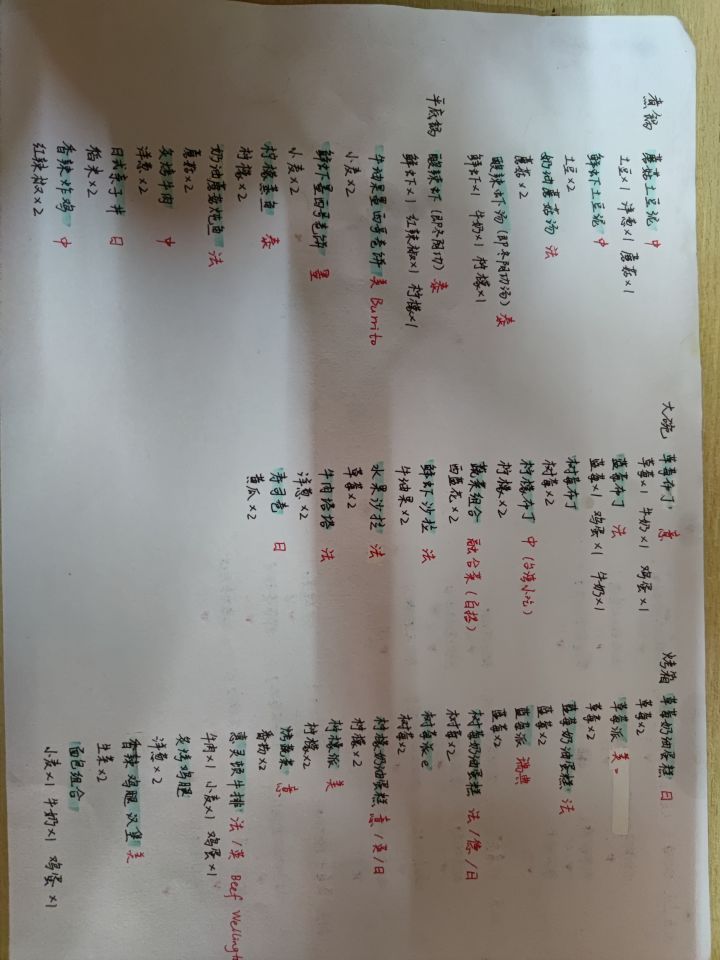 煮锅 蘑菇土豆泥 中
土豆×1 洋葱×1 蘑菇×1
鲜虾土豆泥 中
土豆×2
奶油蘑菇汤 法
蘑菇×2
酸辣虾汤(即冬阴功汤) 泰
鲜虾×1 牛奶×1 柠檬×1
平底锅 酸辣虾(即冬阴功) 泰
鲜虾×1 红辣椒×1 柠檬×1
牛油果墨西哥卷饼 美 Burrito
小麦×2
鲜虾墨西哥卷饼 墨
小麦×2
柠檬蒸鱼 泰
柠檬×2
奶油蘑菇炖鱼 法
蘑菇×2
炙烤牛肉 中
洋葱×2
日式亲子丼 日
稻米×2
香辣炸鸡 中
红辣椒×2
大碗 草莓布丁 意
草莓×1 牛奶×1 鸡蛋×1
蓝莓布丁 法
蓝莓×1 鸡蛋×1 牛奶×1
树莓布丁
树莓×2
柠檬布丁 中(台湾小吃)
柠檬×2
蔬菜组合 融合菜(白搭)
西蓝花×2
鲜虾沙拉 法
牛油果×2
水果沙拉 法
草莓×2
牛肉塔塔 法
洋葱×2
寿司卷 日
黄瓜×2
烤箱 草莓奶油蛋糕 日
草莓×2
草莓派 美
草莓×2
蓝莓奶油蛋糕 法
蓝莓×2
蓝莓派 瑞典
蓝莓×2
树莓奶油蛋糕 法/德/日
树莓×2
树莓派 e
树莓×2
柠檬奶油蛋糕 意/英/日
柠檬×2
柠檬派 美
柠檬×2
烧蘑菇 意
番茄×2
惠灵顿牛排 法/英 Beef Wellingt
牛肉×1 小麦×1 鸡蛋×1
炙烤鸡腿
洋葱×2
香辣鸡腿汉堡 美
生菜×2
面包组合
小麦×1 牛奶×1 鸡蛋×1